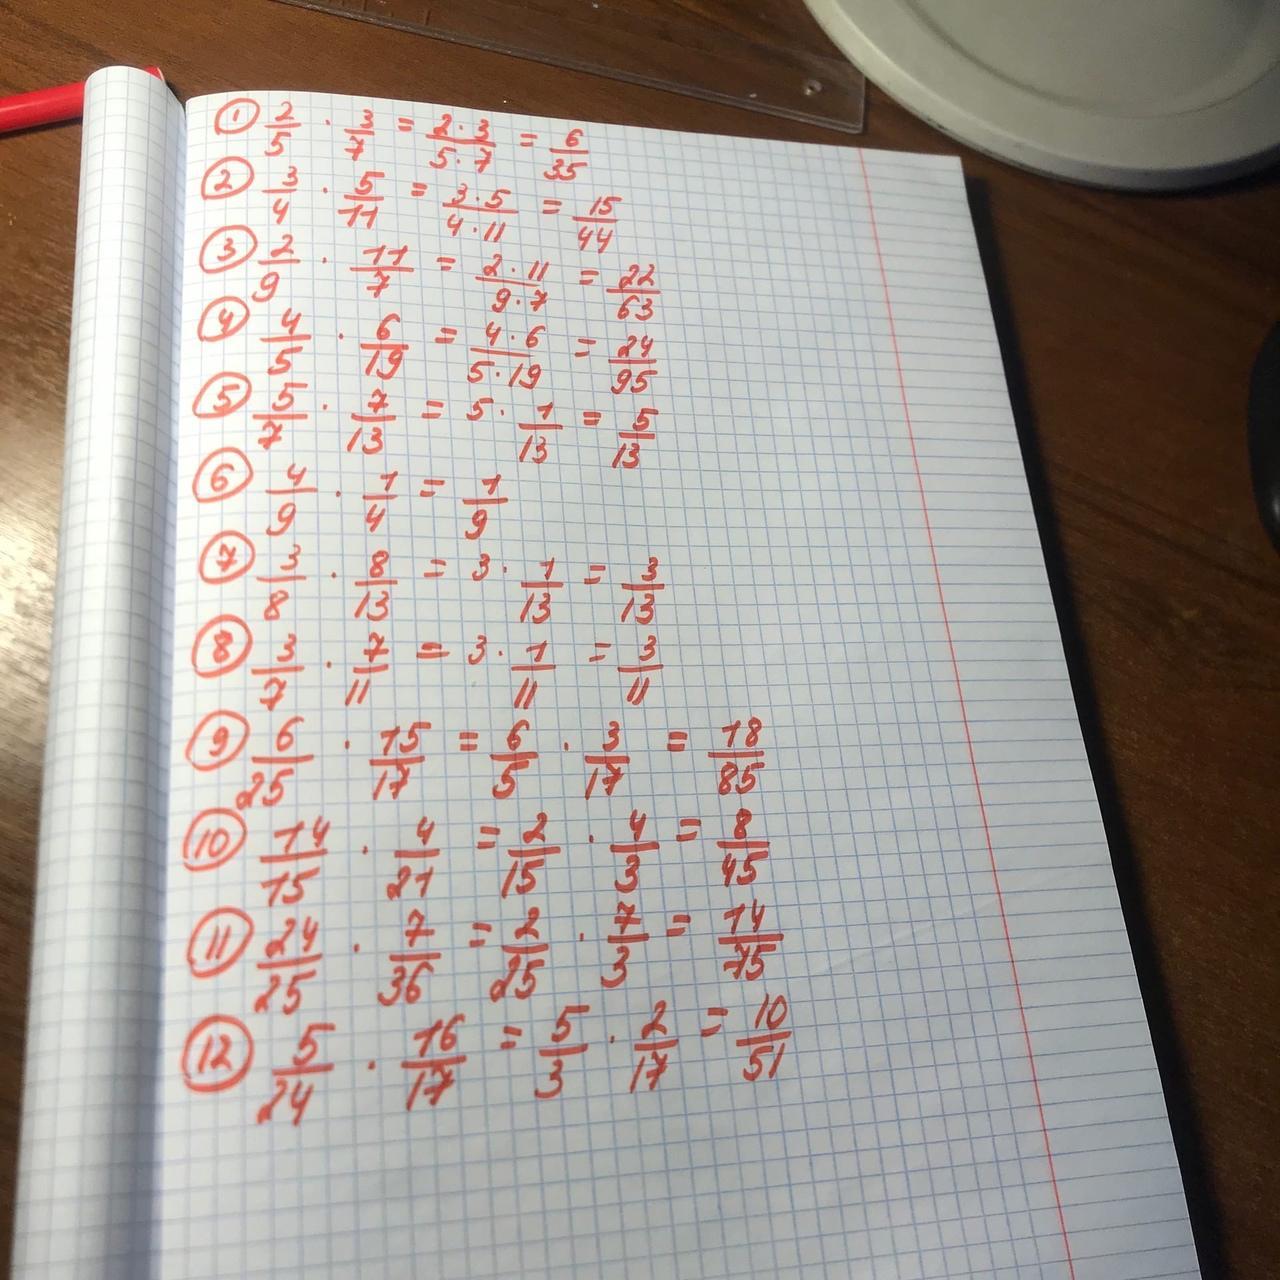 ① 2/5 · 3/7 = 2·3/5·7 = 6/35
② 3/4 · 5/11 = 3·5/4·11 = 15/44
③ 2/9 · 11/7 = 2·11/9·7 = 22/63
④ 4/5 · 6/19 = 4·6/5·19 = 24/95
⑤ 5/7 · 7/13 = 5 · 1/13 = 5/13
⑥ 4/9 · 1/4 = 1/9
⑦ 3/8 · 8/13 = 3 · 1/13 = 3/13
⑧ 3/7 · 7/11 = 3 · 1/11 = 3/11
⑨ 6/25 · 15/17 = 6/5 · 3/17 = 18/85
⑩ 14/15 · 4/21 = 2/15 · 4/3 = 8/45
⑪ 24/25 · 7/36 = 2/25 · 7/3 = 14/75
⑫ 5/24 · 16/17 = 5/3 · 2/17 = 10/51